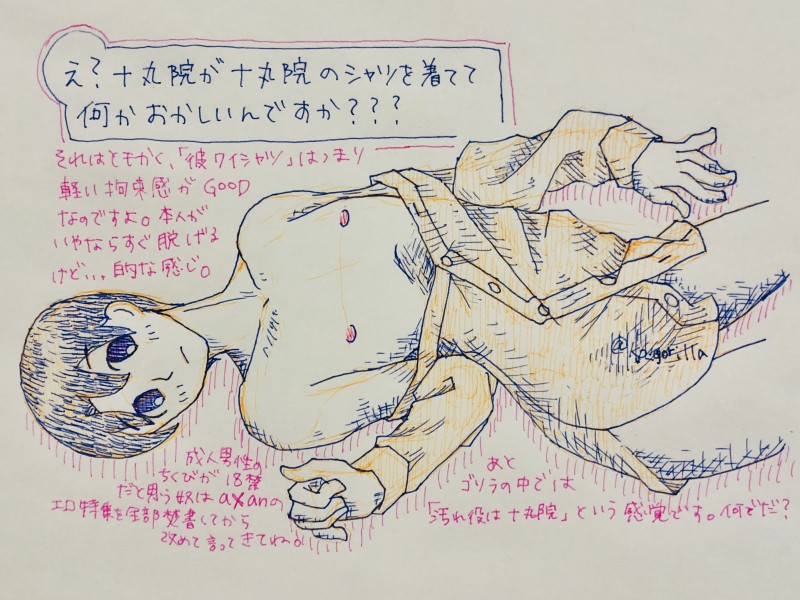 え？十丸院が十丸院のシャツを着てて
何かおかしいんですか？？？
それはともかく、「彼ワイシャツ」はつまり
軽い拘束感がGOOD
なのですよ。本人が
いやならすぐ脱げる
けど…。的な感じ。
成人男性の
ちくびが18禁
だと思う奴はaxanの
エロ特集を全部焚書してから
改めて言ってきてね。
あと
ゴリラの中では
「汚れ役は十丸院」という感覚です。何でだ？